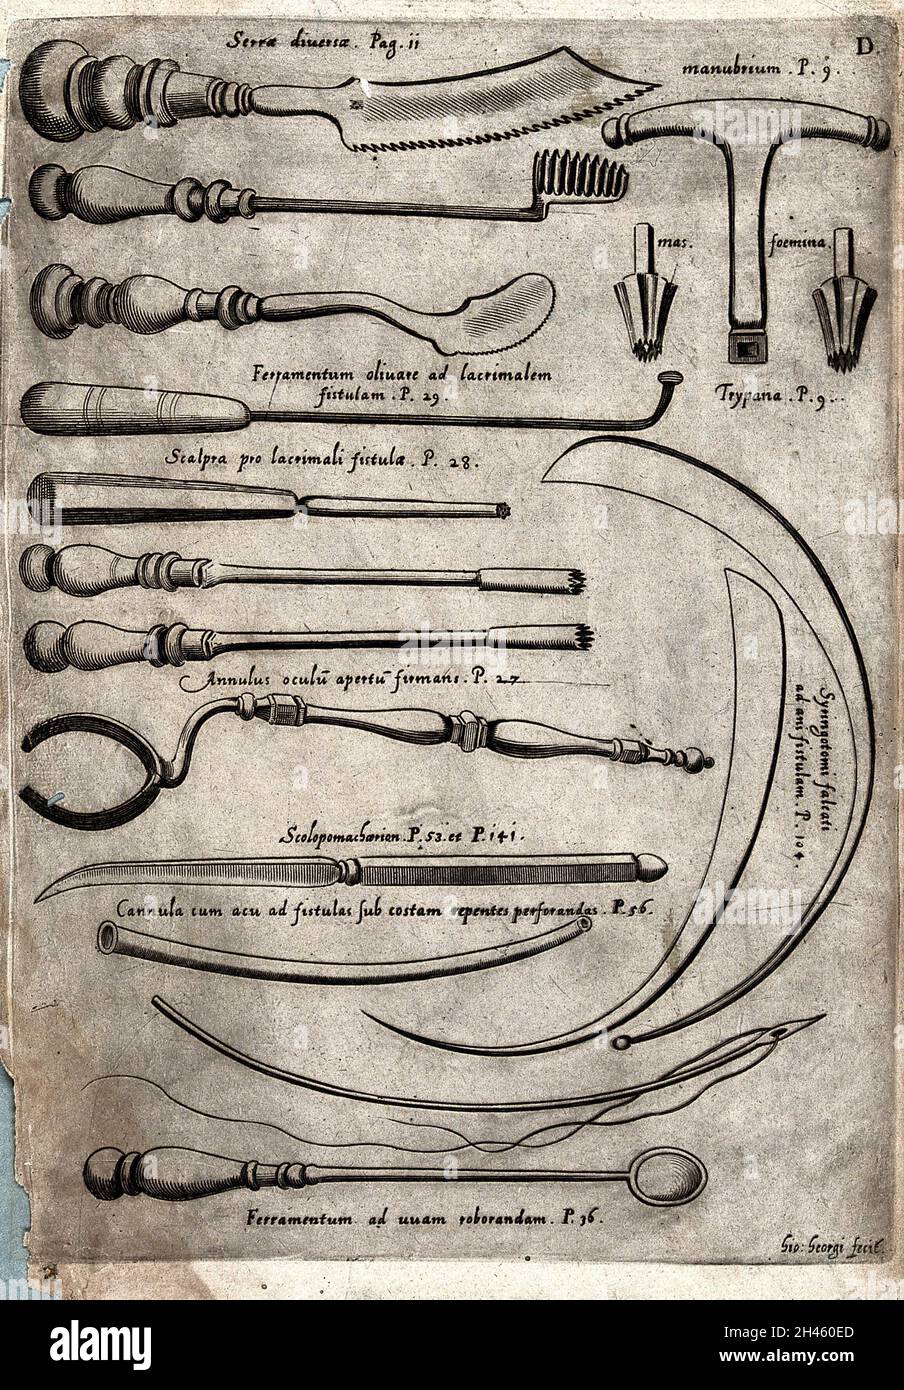 Serræ diversæ. Pag. 11
D.
manubrium. P. 9.
mas.
foemina.
Trypana. P. 9.
Ferramentum olivare ad lacrimalem
fistulam. P. 29.
Scalpra pro lacrimali fistulæ. P. 28.
Annulus oculū apertū firmans. P. 27.
Syringotomi falcati
ad ani fistulam. P. 104.
Scolopomachærion. P. 53. et P. 141.
Cannula cum acu ad fistulas sub costam repentes perforandas. P. 56.
Ferramentum ad uuam roborandam. P. 36.
Gio: Georgi fecit.
alamy
Image ID: 2H460ED
www.alamy.com